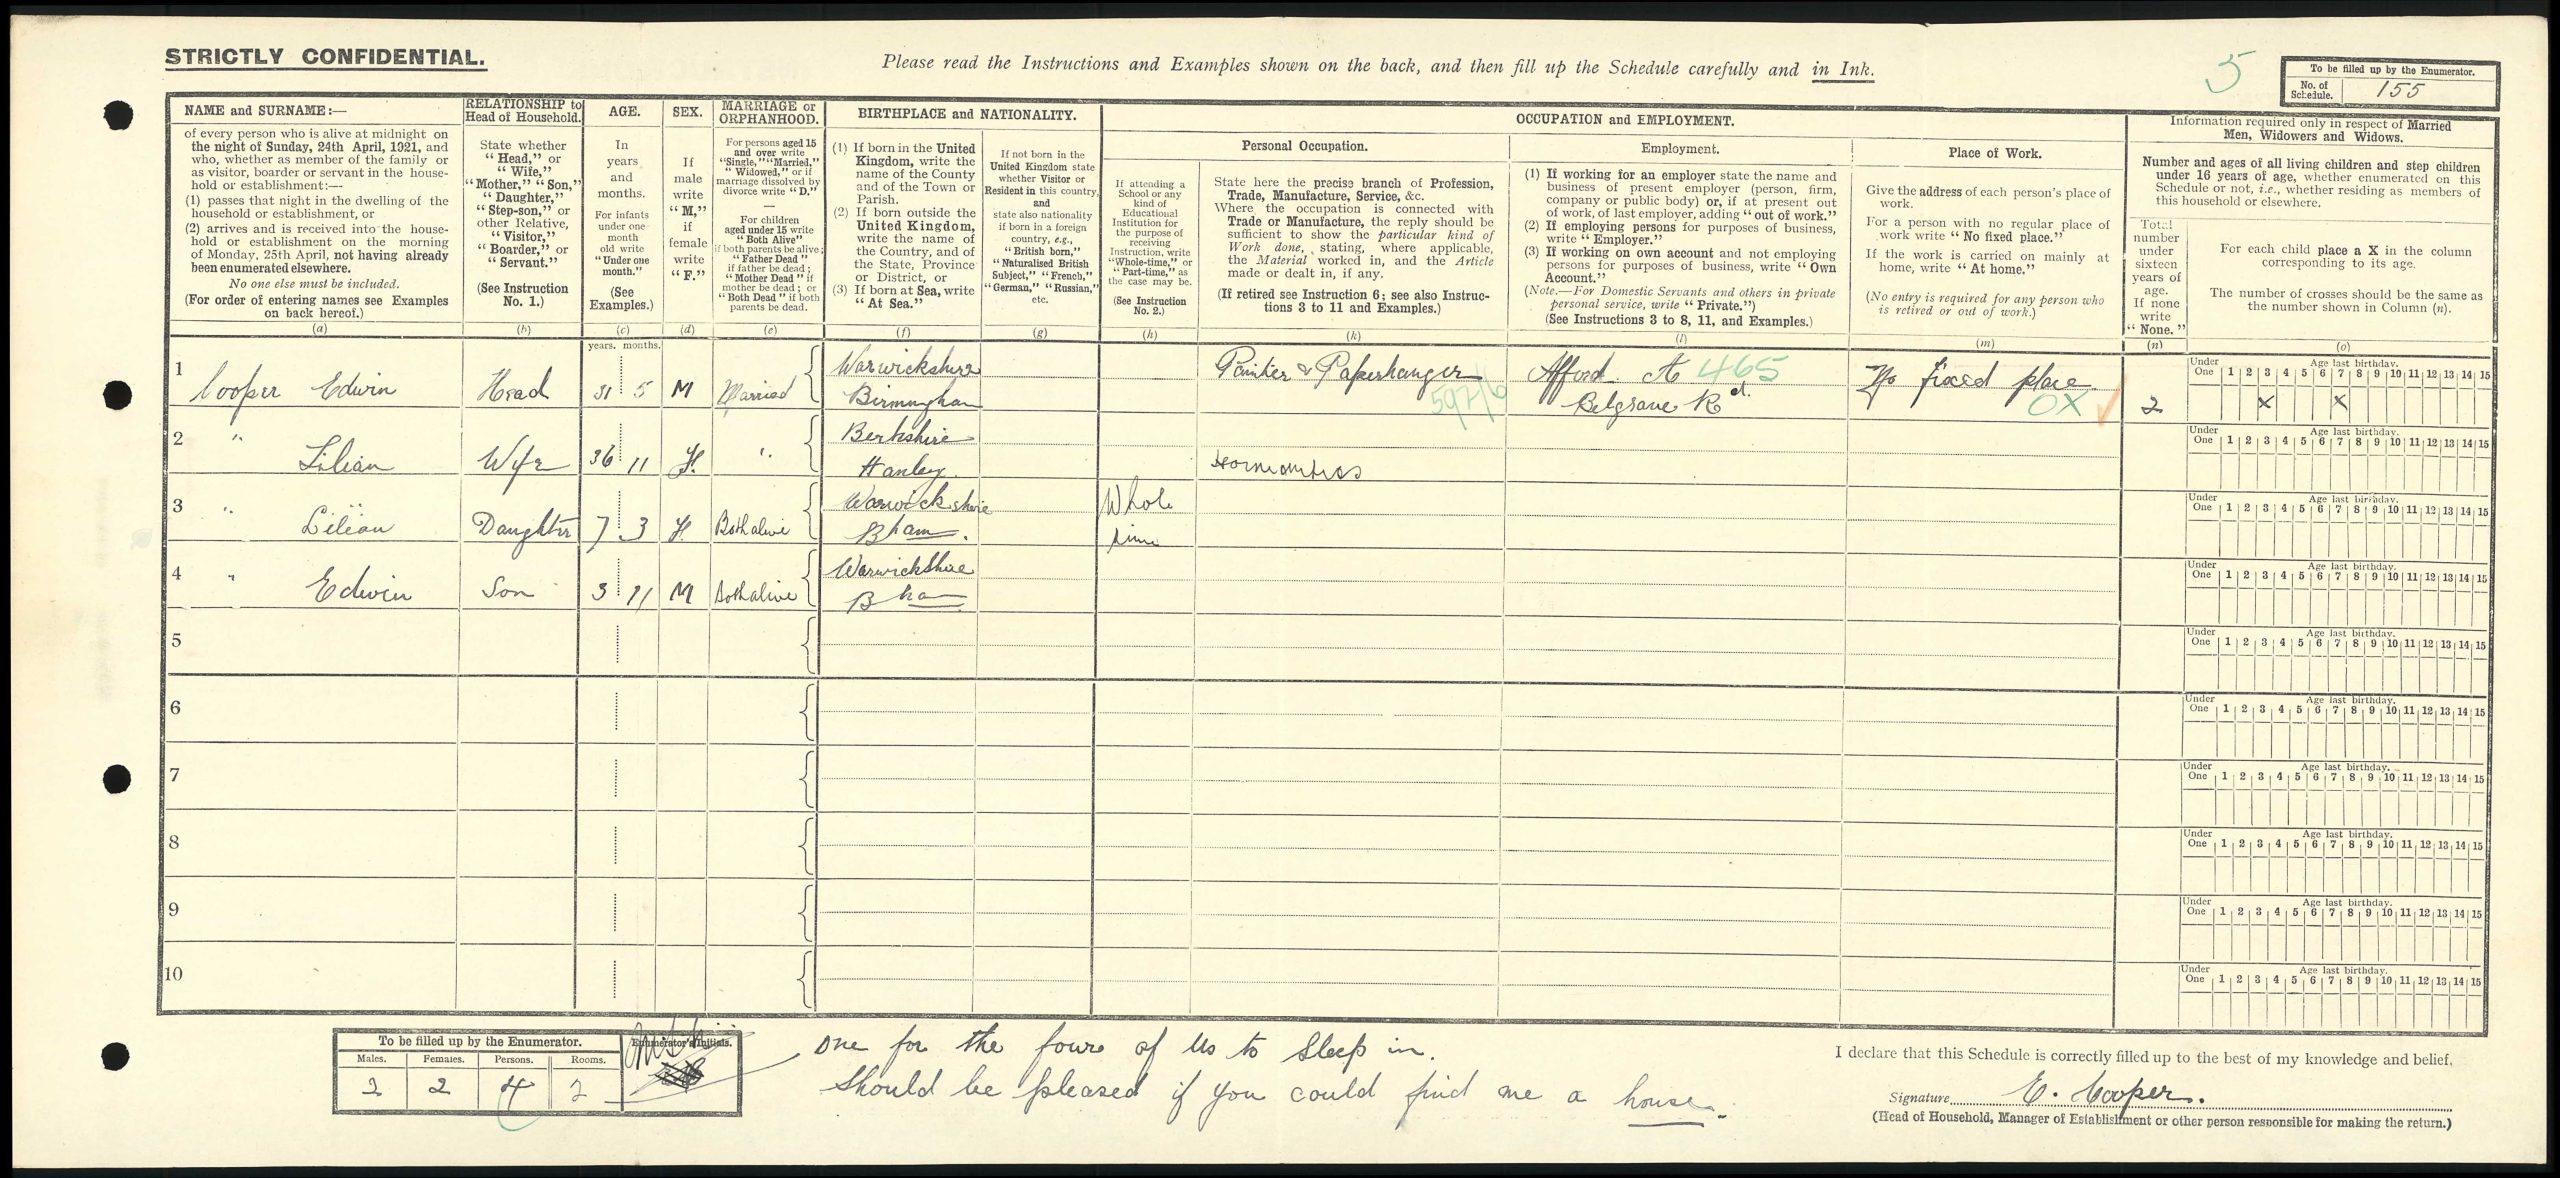 STRICTLY CONFIDENTIAL.
Please read the Instructions and Examples shown on the back, and then fill up the Schedule carefully and in Ink.
5
To be filled up by the Enumerator.
No. of Schedule. 155
NAME and SURNAME:—
of every person who is alive at midnight on
the night of Sunday, 24th April, 1921, and
who, whether as member of the family or
as visitor, boarder or servant in the house-
hold or establishment:—
(1) passes that night in the dwelling of the
household or establishment, or
(2) arrives and is received into the house-
hold or establishment on the morning
of Monday, 25th April, not having already
been enumerated elsewhere.
No one else must be included.
(For order of entering names see Examples
on back hereof.)
(a)
RELATIONSHIP to
Head of Household.
State whether
"Head," or
"Wife,"
"Mother," "Son,"
"Daughter,"
"Step-son," or
other Relative,
"Visitor,"
"Boarder," or
"Servant."
(See Instruction
No. 1.)
(b)
AGE.
In
years
and
months.
For infants
under one
month
old write
"Under one
month."
(See
Examples.)
(c)
SEX.
If
male
write
"M,"
if
female
write
"F."
(d)
MARRIAGE or
ORPHANHOOD.
For persons aged 15
and over write
"Single," "Married,"
"Widowed," or if
marriage dissolved by
divorce write "D."
—
For children
aged under 15 write
"Both Alive"
if both parents be alive;
"Father Dead"
if father be dead;
"Mother Dead" if
mother be dead; or
"Both Dead" if both
parents be dead.
(e)
BIRTHPLACE and NATIONALITY.
(1) If born in the United
Kingdom, write the
name of the County
and of the Town or
Parish.
(2) If born outside the
United Kingdom,
write the name of
the Country, and of
the State, Province
or District, or
(3) If born at Sea, write
"At Sea."
(f)
If not born in the
United Kingdom state
whether Visitor or
Resident in this country,
and
state also nationality
if born in a foreign
country, e.g.,
"British born,"
"Naturalised British
Subject," "French,"
"German," "Russian,"
etc.
(g)
OCCUPATION and EMPLOYMENT.
If attending a
School or any
kind of
Educational
Institution for
the purpose of
receiving
Instruction, write
"Whole-time," or
"Part-time," as
the case may be.
(See Instruction
No. 2.)
(h)
Personal Occupation.
State here the precise branch of Profession,
Trade, Manufacture, Service, &c.
Where the occupation is connected with
Trade or Manufacture, the reply should be
sufficient to show the particular kind of
Work done, stating, where applicable,
the Material worked in, and the Article
made or dealt in, if any.
(If retired see Instruction 6; see also Instruc-
tions 3 to 11 and Examples.)
(k)
Employment.
(1) If working for an employer state the name and
business of present employer (person, firm,
company or public body) or, if at present out
of work, of last employer, adding "out of work."
(2) If employing persons for purposes of business,
write "Employer."
(3) If working on own account and not employing
persons for purposes of business, write "Own
Account."
(Note.—For Domestic Servants and others in private
personal service, write "Private.")
(See Instructions 3 to 8, 11, and Examples.)
(l)
Place of Work.
Give the address of each person's place of
work.
For a person with no regular place of
work write "No fixed place."
If the work is carried on mainly at
home, write "At home."
(No entry is required for any person who
is retired or out of work.)
(m)
Information required only in respect of Married
Men, Widowers and Widows.
Number and ages of all living children and step children
under 16 years of age, whether enumerated on this
Schedule or not, i.e., whether residing as members of
this household or elsewhere.
Total
number
under
sixteen
years of
age.
If none
write
"None."
(n)
For each child place a X in the column
corresponding to its age.
The number of crosses should be the same as
the number shown in Column (n).
(o)
years. months.
1 Cooper Edwin Head 31 5 M Married Warwickshire Birmingham Painter & Paperhanger 597/6 465 Belgrave Rd. No fixed place 0X 2
Under One Age last birthday. 1 2 3 4 5 6 7 8 9 10 11 12 13 14 15
X X
2 " Lilian Wife 36 11 F. " Berkshire Hanley
Under One Age last birthday. 1 2 3 4 5 6 7 8 9 10 11 12 13 14 15
3 " Lilian Daughter 7 3 F. Both alive Warwickshire Bham. Whole time
Under One Age last birthday. 1 2 3 4 5 6 7 8 9 10 11 12 13 14 15
4 " Edwin Son 3 11 M Both alive Warwickshire Bham
Under One Age last birthday. 1 2 3 4 5 6 7 8 9 10 11 12 13 14 15
5
Under One Age last birthday. 1 2 3 4 5 6 7 8 9 10 11 12 13 14 15
6
Under One Age last birthday. 1 2 3 4 5 6 7 8 9 10 11 12 13 14 15
7
Under One Age last birthday. 1 2 3 4 5 6 7 8 9 10 11 12 13 14 15
8
Under One Age last birthday. 1 2 3 4 5 6 7 8 9 10 11 12 13 14 15
9
Under One Age last birthday. 1 2 3 4 5 6 7 8 9 10 11 12 13 14 15
10
Under One Age last birthday. 1 2 3 4 5 6 7 8 9 10 11 12 13 14 15
To be filled up by the Enumerator.
Enumerator's Initials.
Males. Females. Persons. Rooms.
2 2 4 2
one for the four of us to sleep in.
Should be pleased if you could find me a house.
I declare that this Schedule is correctly filled up to the best of my knowledge and belief.
Signature E. Cooper.
(Head of Household, Manager of Establishment or other person responsible for making the return.)